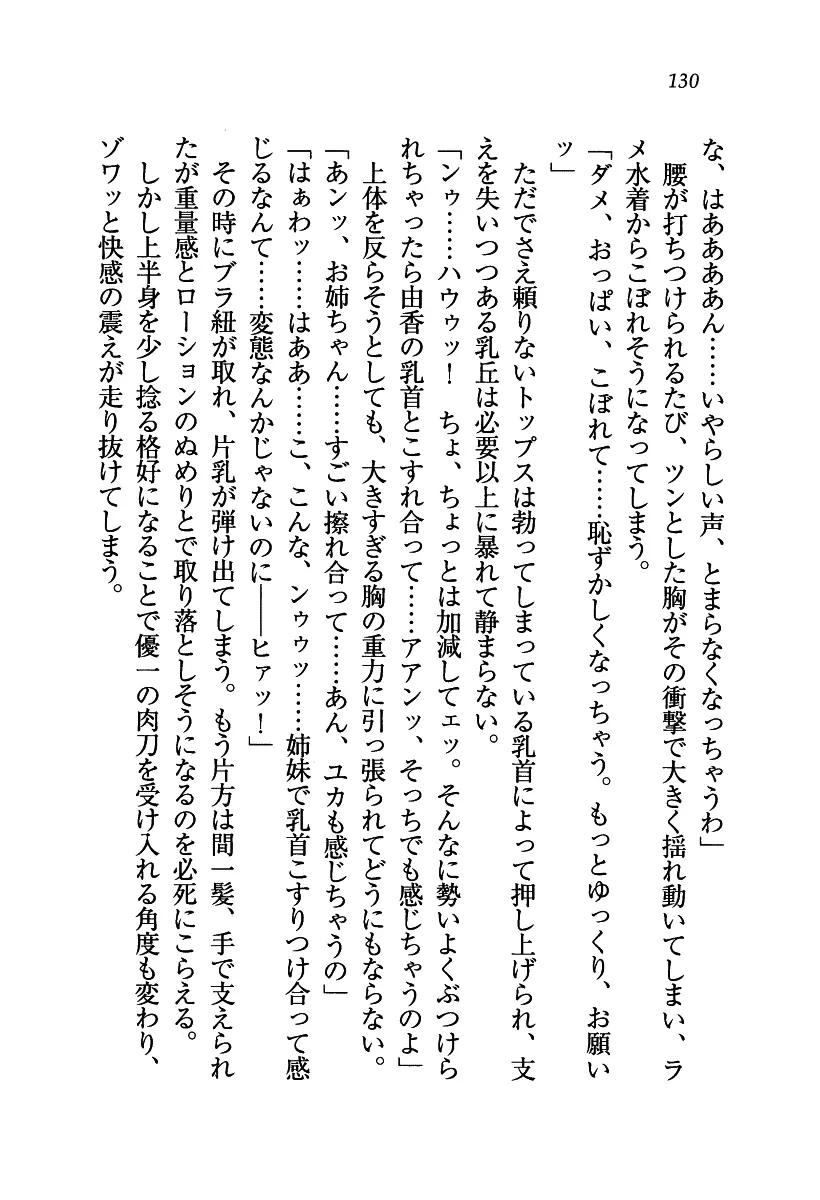 130
な、はああああん……いやらしい声、とまらなくなっちゃうわ」
腰が打ちつけられるたび、ツンとした胸がその衝撃で大きく揺れ動いてしまい、ラ
メ水着からこぼれそうになってしまう。
「ダメ、おっぱい、こぼれて……恥ずかしくなっちゃう。もっとゆっくり、お願い
ッ」
ただでさえ頼りないトップスは勃ってしまっている乳首によって押し上げられ、支
えを失いつつある乳丘は必要以上に暴れて静まらない。
「ンゥ……ハウゥッ！　ちょ、ちょっとは加減してェッ。そんなに勢いよくぶつけら
れちゃったら由香の乳首とこすれ合って……アアンッ、そっちでも感じちゃうのよ」
上体を反らそうとしても、大きすぎる胸の重力に引っ張られてどうにもならない。
「あンッ、お姉ちゃん……すごい擦れ合って……あん、ユカも感じちゃうの」
「はぁわッ……はああ……こ、こんな、ンゥゥッ……姉妹で乳首こすりつけ合って感
じるなんて……変態なんかじゃないのに――ヒァッ！」
その時にブラ紐が取れ、片乳が弾け出てしまう。もう片方は間一髪、手で支えられ
たが重量感とローションのぬめりとで取り落としそうになるのを必死にこらえる。
しかし上半身を少し捻る格好になることで優一の肉刀を受け入れる角度も変わり、
ゾワッと快感の震えが走り抜けてしまう。